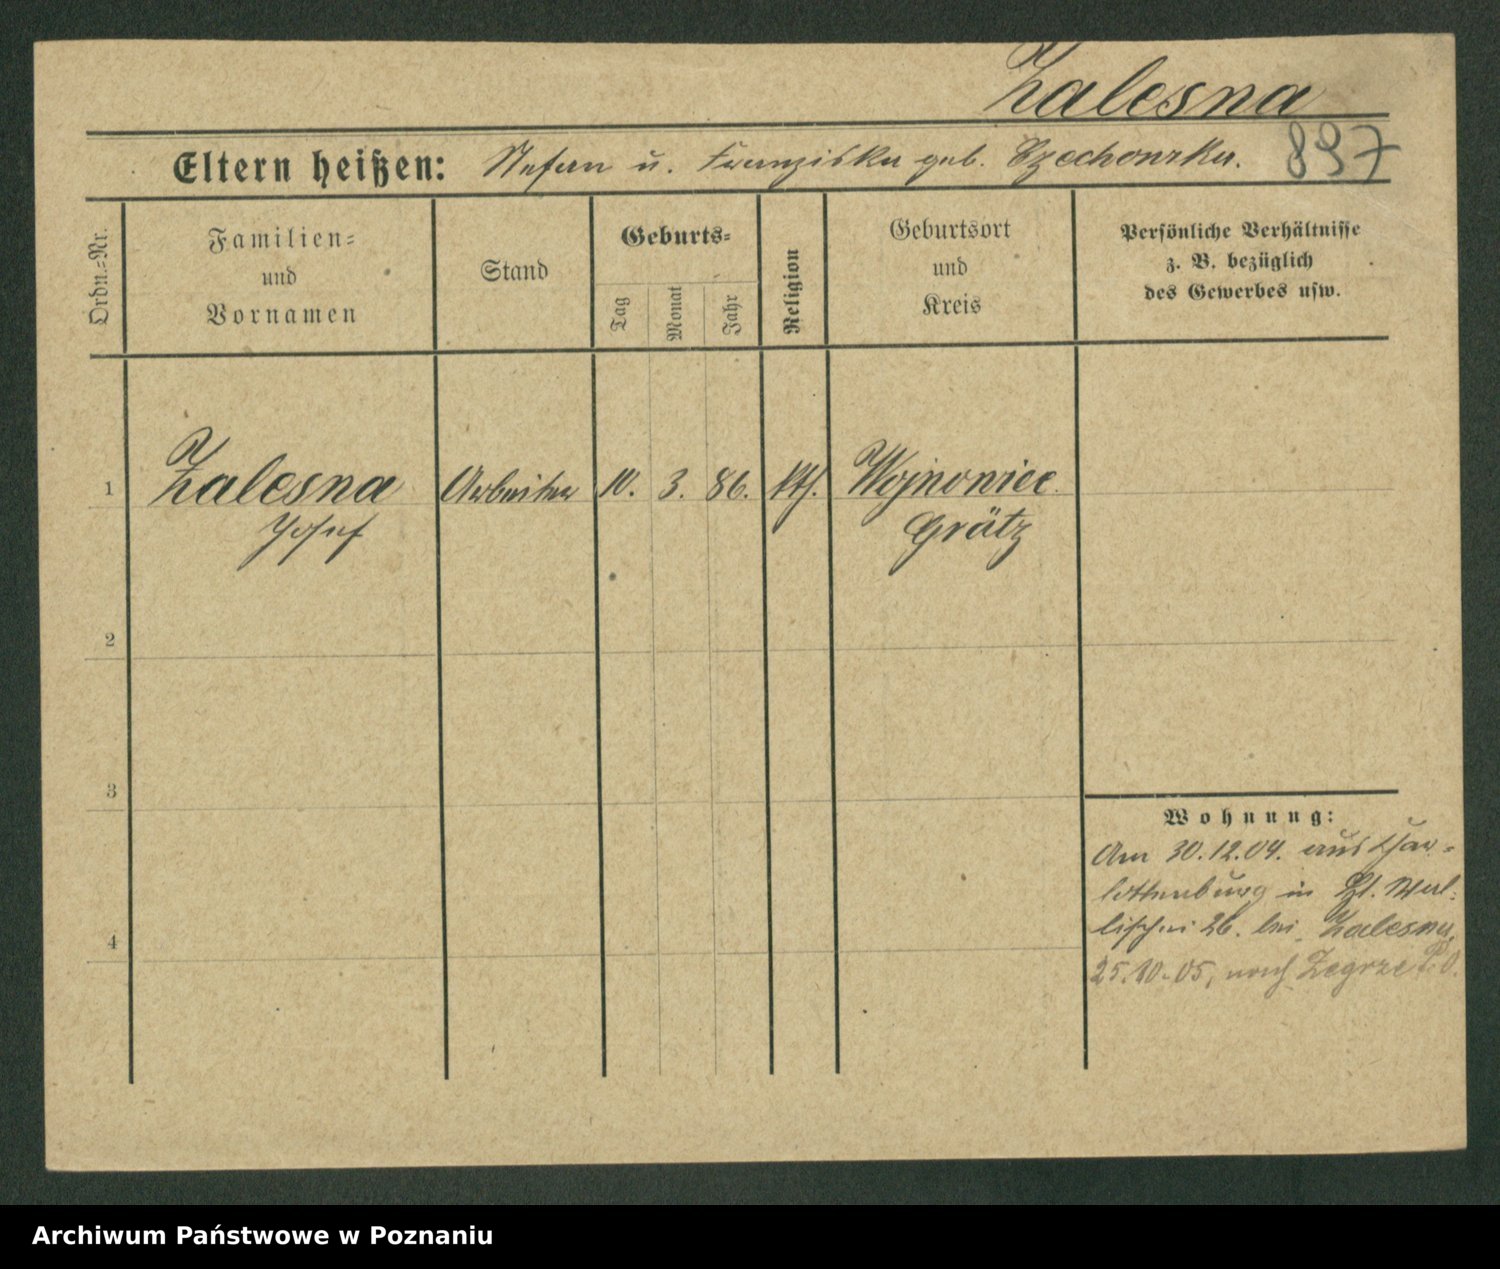 Zalesna
897
Eltern heißen: Stefan u. Franziska geb. Czechowska.
Ordn.=Nr.
Familien=
und
Vornamen
Stand
Geburts=
Tag
Monat
Jahr
Religion
Geburtsort
und
Kreis
Persönliche Verhältnisse
z. B. bezüglich
des Gewerbes usw.
1 Zalesna Arbeiter 10. 3. 86. kth. Wojnowice
Josef Grätz
2
3
4
Wohnung:
Am 30.12.04. aus Char=
lottenburg in St. Wal=
lischei 26. bei Zalesna,
25.10.05, nach Zegrze
Archiwum Państwowe w Poznaniu